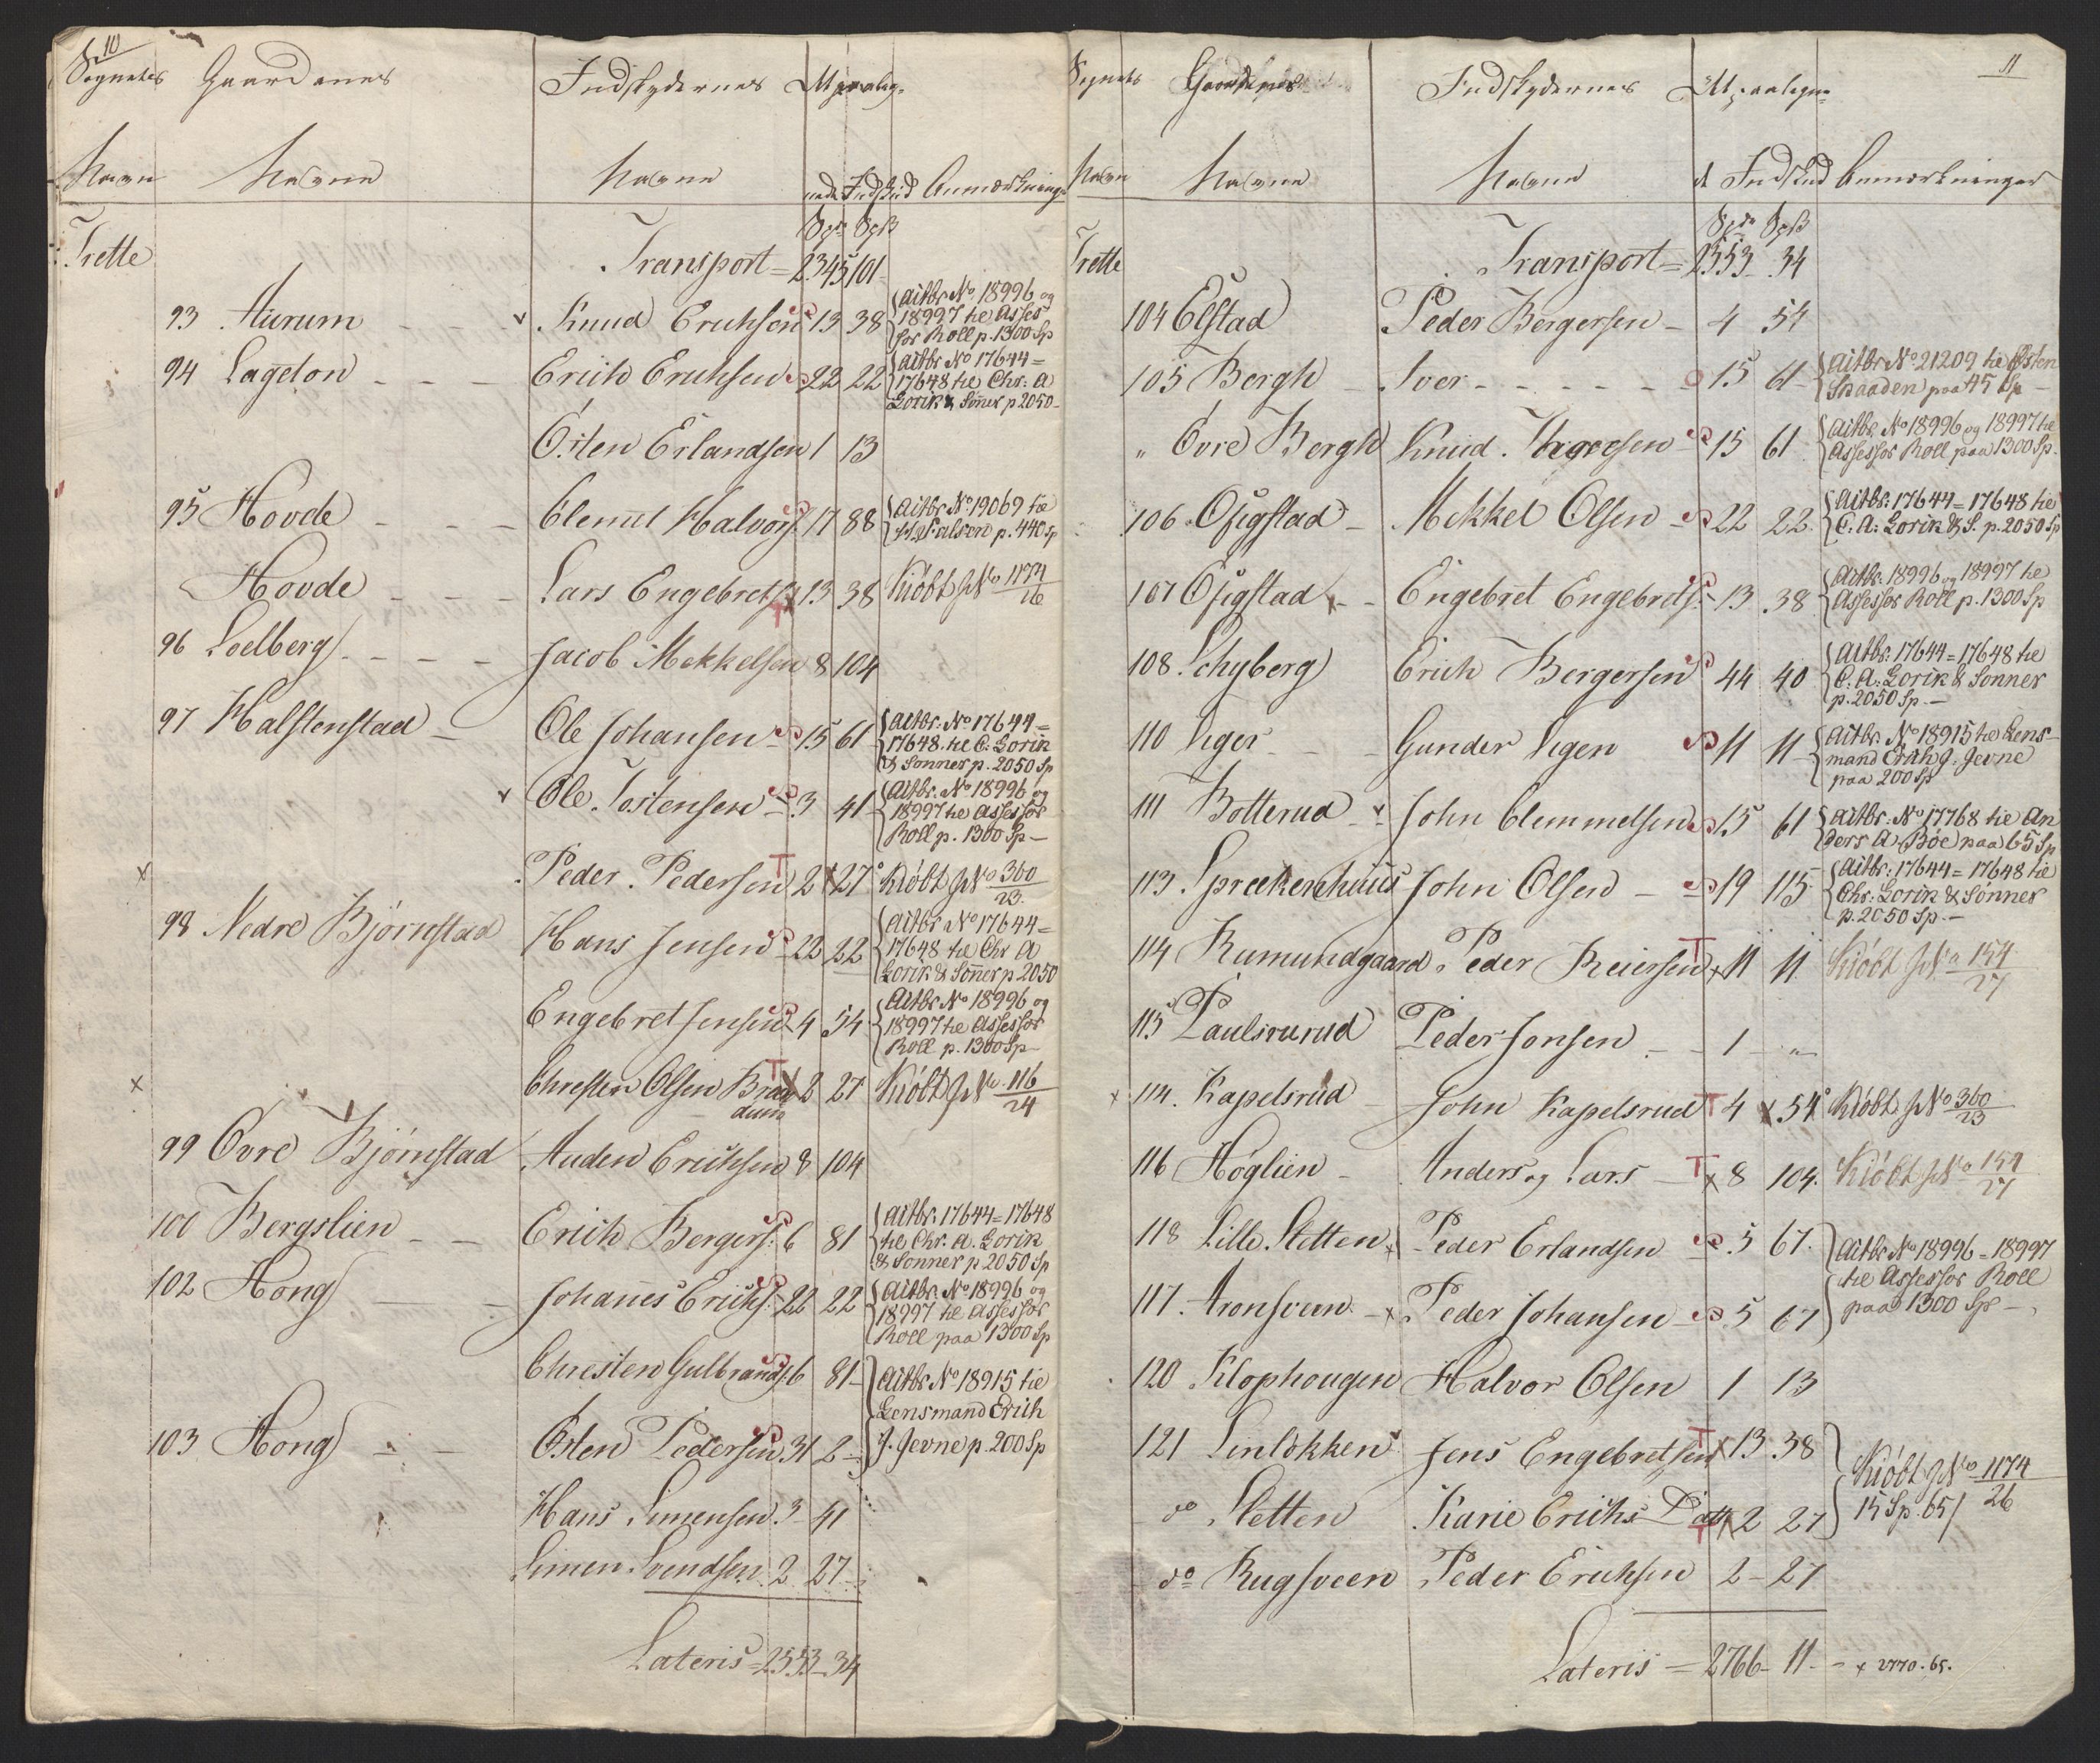 10
Sognets Gaardenes Indskydernes Utpaaleg-
Navn Navne Navne nede Indskud Anmærkninger
Spd. Sk
Trette Transport = 2345 101
93 Aurum - - - Knud Erichsen 13 38 {Aitbr. No 18996 og
18997 tie Asses
sor Roll p. 1300 Sp
94 Lageton - - - Erich Erichsen 22 22 {Aitbr No 17644 =
17648 tie Chr: A
Lorik & Sönner p 2050 -
Østen Erlandsen 1 13
95 Hovde - - - Clemet Halvors. 17 88 {Aitbr No 19069 tie
Falsen p. 440 Sp
Hovde - - - Lars Engebrets. 13 38 Kiöbt No 1174/26
96 Loelberg - - - - Jacob Mekkelsen 8 104
97 Halstenstad - Ole Johansen - 15 61 {Aitbr: No 17644 =
17648. tie C. Lorik
& Sonner p. 2050 Sp
Ole Tostensen - 3 41 {Aitbr. No 18996 og
18997 tie Assessor
Roll p. 1300 Sp -
x Peder Pedersen T 2 x 27 Kiöbt No 360/23.
98 Nedre Björnstad Hans Jensen 22 22 {Aitbr No 17644 =
17648 tie Chr A
Lorik & Sönner p. 2050
Engebret Jensen 4 54 {Aitbr No 18996 og
18997 tie Assessor
Roll p. 1300 Sp -
x Christen Olsen Braa T x 2 27 Kiöbt No. 116/24
dum
99 Ovre Bjørnstad Auden Erichsen 8 104
100 Bergslien - - Erich Bergers: 6 81 {Aitbr. 17644 = 17648
tie Chr. A. Lorik
& Sonner p 2050 Sp
102 Hong - Johanes Erichs: 22 22 {Aitbr. No 18996 og
18997 tie Assessor
Roll paa 1300 Sp
Christen Gulbrands: 6 81 - }Aitbr No 18915 tie
Lensmand Erich
103 Hong - - Østen Pedersen 31 2 - J. Jevne p. 200 Sp
Hans Simensen 3 - 41
Simen Svendsen 2 27
Lateris = 2553 - 34
11
Sognets Gaardenes Indskydernes Utpaalegne
Navn Navne Navne d Indskud Anmærkninger
Spd. Sk
Trette Transport = 2553 34
104 Elstad Peder Bergersen - 4 54
105 Bergh - Iver - - - - - 15 61 {Aitbr No 21209 tie Østen
Skaaden paa 45 Sp -
" Övre Bergh Knud Iversen 15 61 {Aitbr. No 18996 og 18997 tie
Assessor Roll paa 1300 Sp.
106 Ofigstad - Mekkel Olsen - 22 22 {Aitbr: 17644 = 17648 tie
C. A: Lorik & S. p. 2050 Sp
107 Ofigstad - - Engebret Engebrets: 13 38 {Aitbr. 18996 og 18997 tie
Assessor Roll p. 1300 Sp
108 Schyberg Erich Bergersen 44 40 {Aitbr: 17644 = 17648 tie
C. A: Lorik & Sonner
p. 2050 Sp. -
110 Iger - - Gunder Igen 11 11 {Aitbr. No 18915 tie Lens-
mand Erich J. Jevne
paa 200 Sp
111 Botterud - John Clemmelsen 15 61 {Aitbr: No 17768 tie An
ders A. Böe paa 65 Sp
113 Spreekenhuus John Olsen - 19 115 {Aitbr: 17644 = 17648 tie
Chr: Lorik & Sönner
p. 2050 Sp. -
114 Rumundgaard Peder Reiersen T x 11 11 Kiöbt No 154/27
115 Paulsrurud Peder Jonsen - - 1 - "
x 114. Kapelsrud - John Kapelsrud T 4 x 54 Kiöbt No 360/23
116 Höglien - Anders og Lars - T x 8 104. Kiöbt No 154/27
118 Lille Sletten x Peder Erlandsen 5 67. }Aitbr No 18996 = 18997
tie Assessor Roll
117. Aronsveen - x Peder Johansen 5 67 paa 1300 Sp -
120 Klophougen Halvor Olsen 1 13
121 Linlökken Jens Engebretsen T x 13 38 }Kiöbt No 1174/26
do Sletten Karie Erichs Datt T x 2 27 15 Sp. 65/
do Rugsveen Peder Erichsen 2 - 27
Lateris = 2766 - 11 - x 2770. 65.